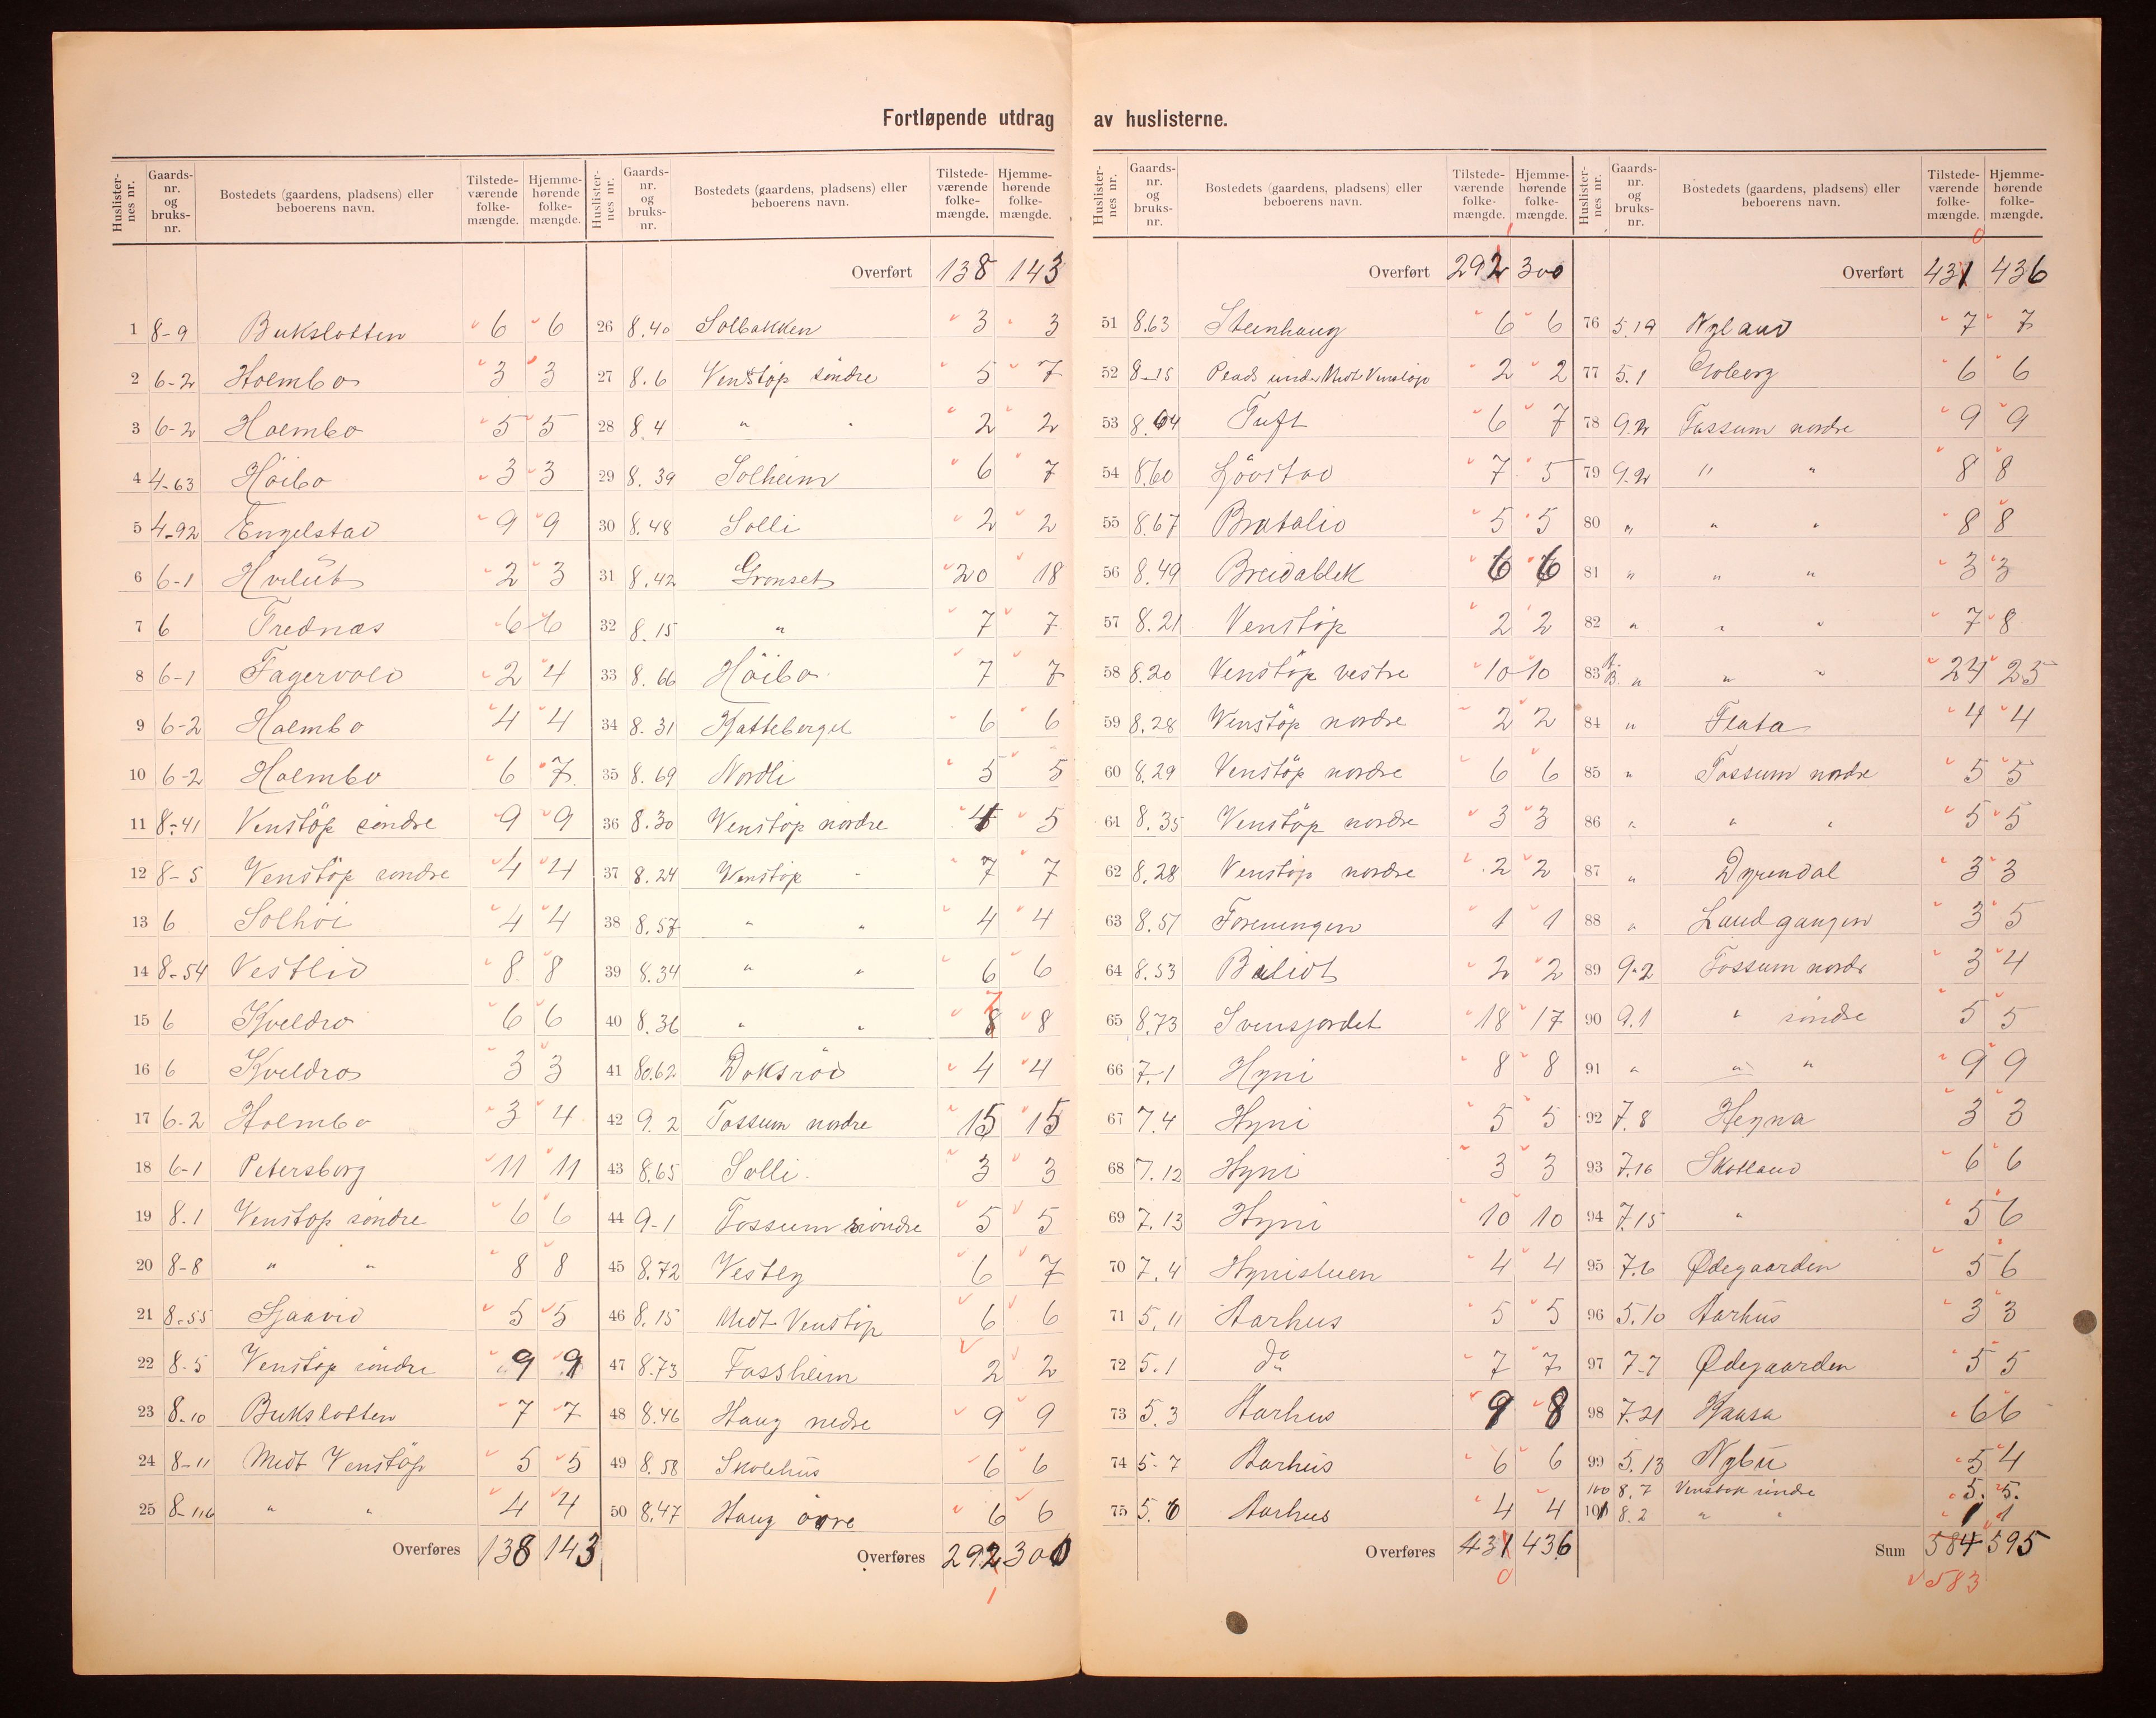 Fortløpende utdrag av huslisterne.
Huslister-nes nr. Gaards-nr. og bruks-nr. Bostedets (gaardens, pladsens) eller beboerens navn. Tilstede-værende folke-mængde. Hjemme-hørende folke-mængde.
1 8-9 Bukslotten 6 6
2 6-2 Holmbo 3 3
3 6-2 Holmbo 5 5
4 4-63 Höibo 3 3
5 4-92 Engelstad 9 9
6 6-1 Hvilüt 2 3
7 6 Frednæs 6 6
8 6-1 Fagervold 2 4
9 6-2 Holmbo 4 4
10 6-2 Holmbo 6 7
11 8-41 Venstöp söndre 9 9
12 8-5 Venstöp söndre 4 4
13 6 Solhöi 4 4
14 8-54 Vestlid 8 8
15 6 Kveldro 6 6
16 6 Kveldro 3 3
17 6-2 Holmbo 3 4
18 6-1 Petersborg 11 11
19 8.1 Venstöp söndre 6 6
20 8-8 " " 8 8
21 8-55 5 5
22 8-5 Venstöp söndre 9 9
23 8-10 Bukslotten 7 7
24 8-11 Midt Venstöp 5 5
25 8-116 " " 4 4
Overføres 138 143
Huslister-nes nr. Gaards-nr. og bruks-nr. Bostedets (gaardens, pladsens) eller beboerens navn. Tilstede-værende folke-mængde. Hjemme-hørende folke-mængde.
Overført 138 143
26 8.40 Solbakken 3 3
27 8.6 Venstöp söndre 5 7
28 8.4 " " 2 2
29 8.39 Solheim 6 7
30 8.48 Solli 2 2
31 8.42 Gronset 20 18
32 8.15 " 7 7
33 8.66 Höibo 7 7
34 8.31 Katteberget 6 6
35 8.69 Nordli 5 5
36 8.30 Venstöp nordre 4 5
37 8.24 Venstöp " 7 7
38 8.57 " " 4 4
39 8.34 " " 6 6
40 8.36 " " 8 7 8
41 80.62 Doksröd 4 4
42 9.2 Fossum nordre 15 15
43 8.65 Solli 3 3
44 9-1 Fossum söndre 5 5
45 8.72 Vestly 6 7
46 8.15 Midt Venstöp 6 6
47 8.73 Fossheim 2 2
48 8.46 Haug nedre 9 9
49 8.58 Skolehüs 6 6
50 8.47 Haug övre 6 6
Overføres 292 300
1
Huslister-nes nr. Gaards-nr. og bruks-nr. Bostedets (gaardens, pladsens) eller beboerens navn. Tilstede-værende folke-mængde. Hjemme-hørende folke-mængde.
Overført 292 1 300
51 8.63 Steinhaug 6 6
52 8-15 Plads under Midt Venstöp 2 2
53 8.64 Tuft 6 7
54 8.60 Lövstad 7 5
55 8.67 Bratalid 5 5
56 8.49 Breidablik 6 6
57 8.21 Venstöp 2 2
58 8.20 Venstöp vestre 10 10
59 8.28 Venstöp nordre 2 2
60 8.29 Venstöp nordre 6 6
61 8.35 Venstöp nordre 3 3
62 8.28 Venstöp nordre 2 2
63 8.51 Foreningen 1 1
64 8.53 2 2
65 8.73 Svensjordet 18 17
66 7.1 Hyni 8 8
67 7.4 Hyni 5 5
68 7.12 Hyni 3 3
69 7.13 Hyni 10 10
70 7.4 Hynistuen 4 4
71 5.11 Aarhus 5 5
72 5.1 do 7 7
73 5.3 Aarhus 9 8
74 5-7 Aarhus 6 6
75 5.6 Aarhus 4 4
Overføres 431 436
0
Huslister-nes nr. Gaards-nr. og bruks-nr. Bostedets (gaardens, pladsens) eller beboerens navn. Tilstede-værende folke-mængde. Hjemme-hørende folke-mængde.
Overført 431 0 436
76 5.19 Nyland 7 7
77 5.1 6 6
78 9.2 Fossum nordre 9 9
79 9-2 " " 8 8
80 " " " 8 8
81 " " " 3 3
82 " " " 7 8
83 A. B. " " " 24 25
84 " Flata 4 4
85 " Fossum nordre 5 5
86 " " " 5 5
87 " Dyrendal 3 3
88 " Landgangen 3 5
89 9-2 Fossum nordr 3 4
90 9.1 " söndre 5 5
91 " " " 9 9
92 7.8 Hegna 3 3
93 7.16 Skotland 6 6
94 7.15 " 5 6
95 7.6 Ødegaarden 5 6
96 5.10 Aarhüs 3 3
97 7-7 Ødegaarden 5 5
98 7.21 6 6
99 5.13 Nybü 5 4
100 8.7 Venstöp söndre 5. 5.
101 8.2 " " 1 1
Sum 584 595
583